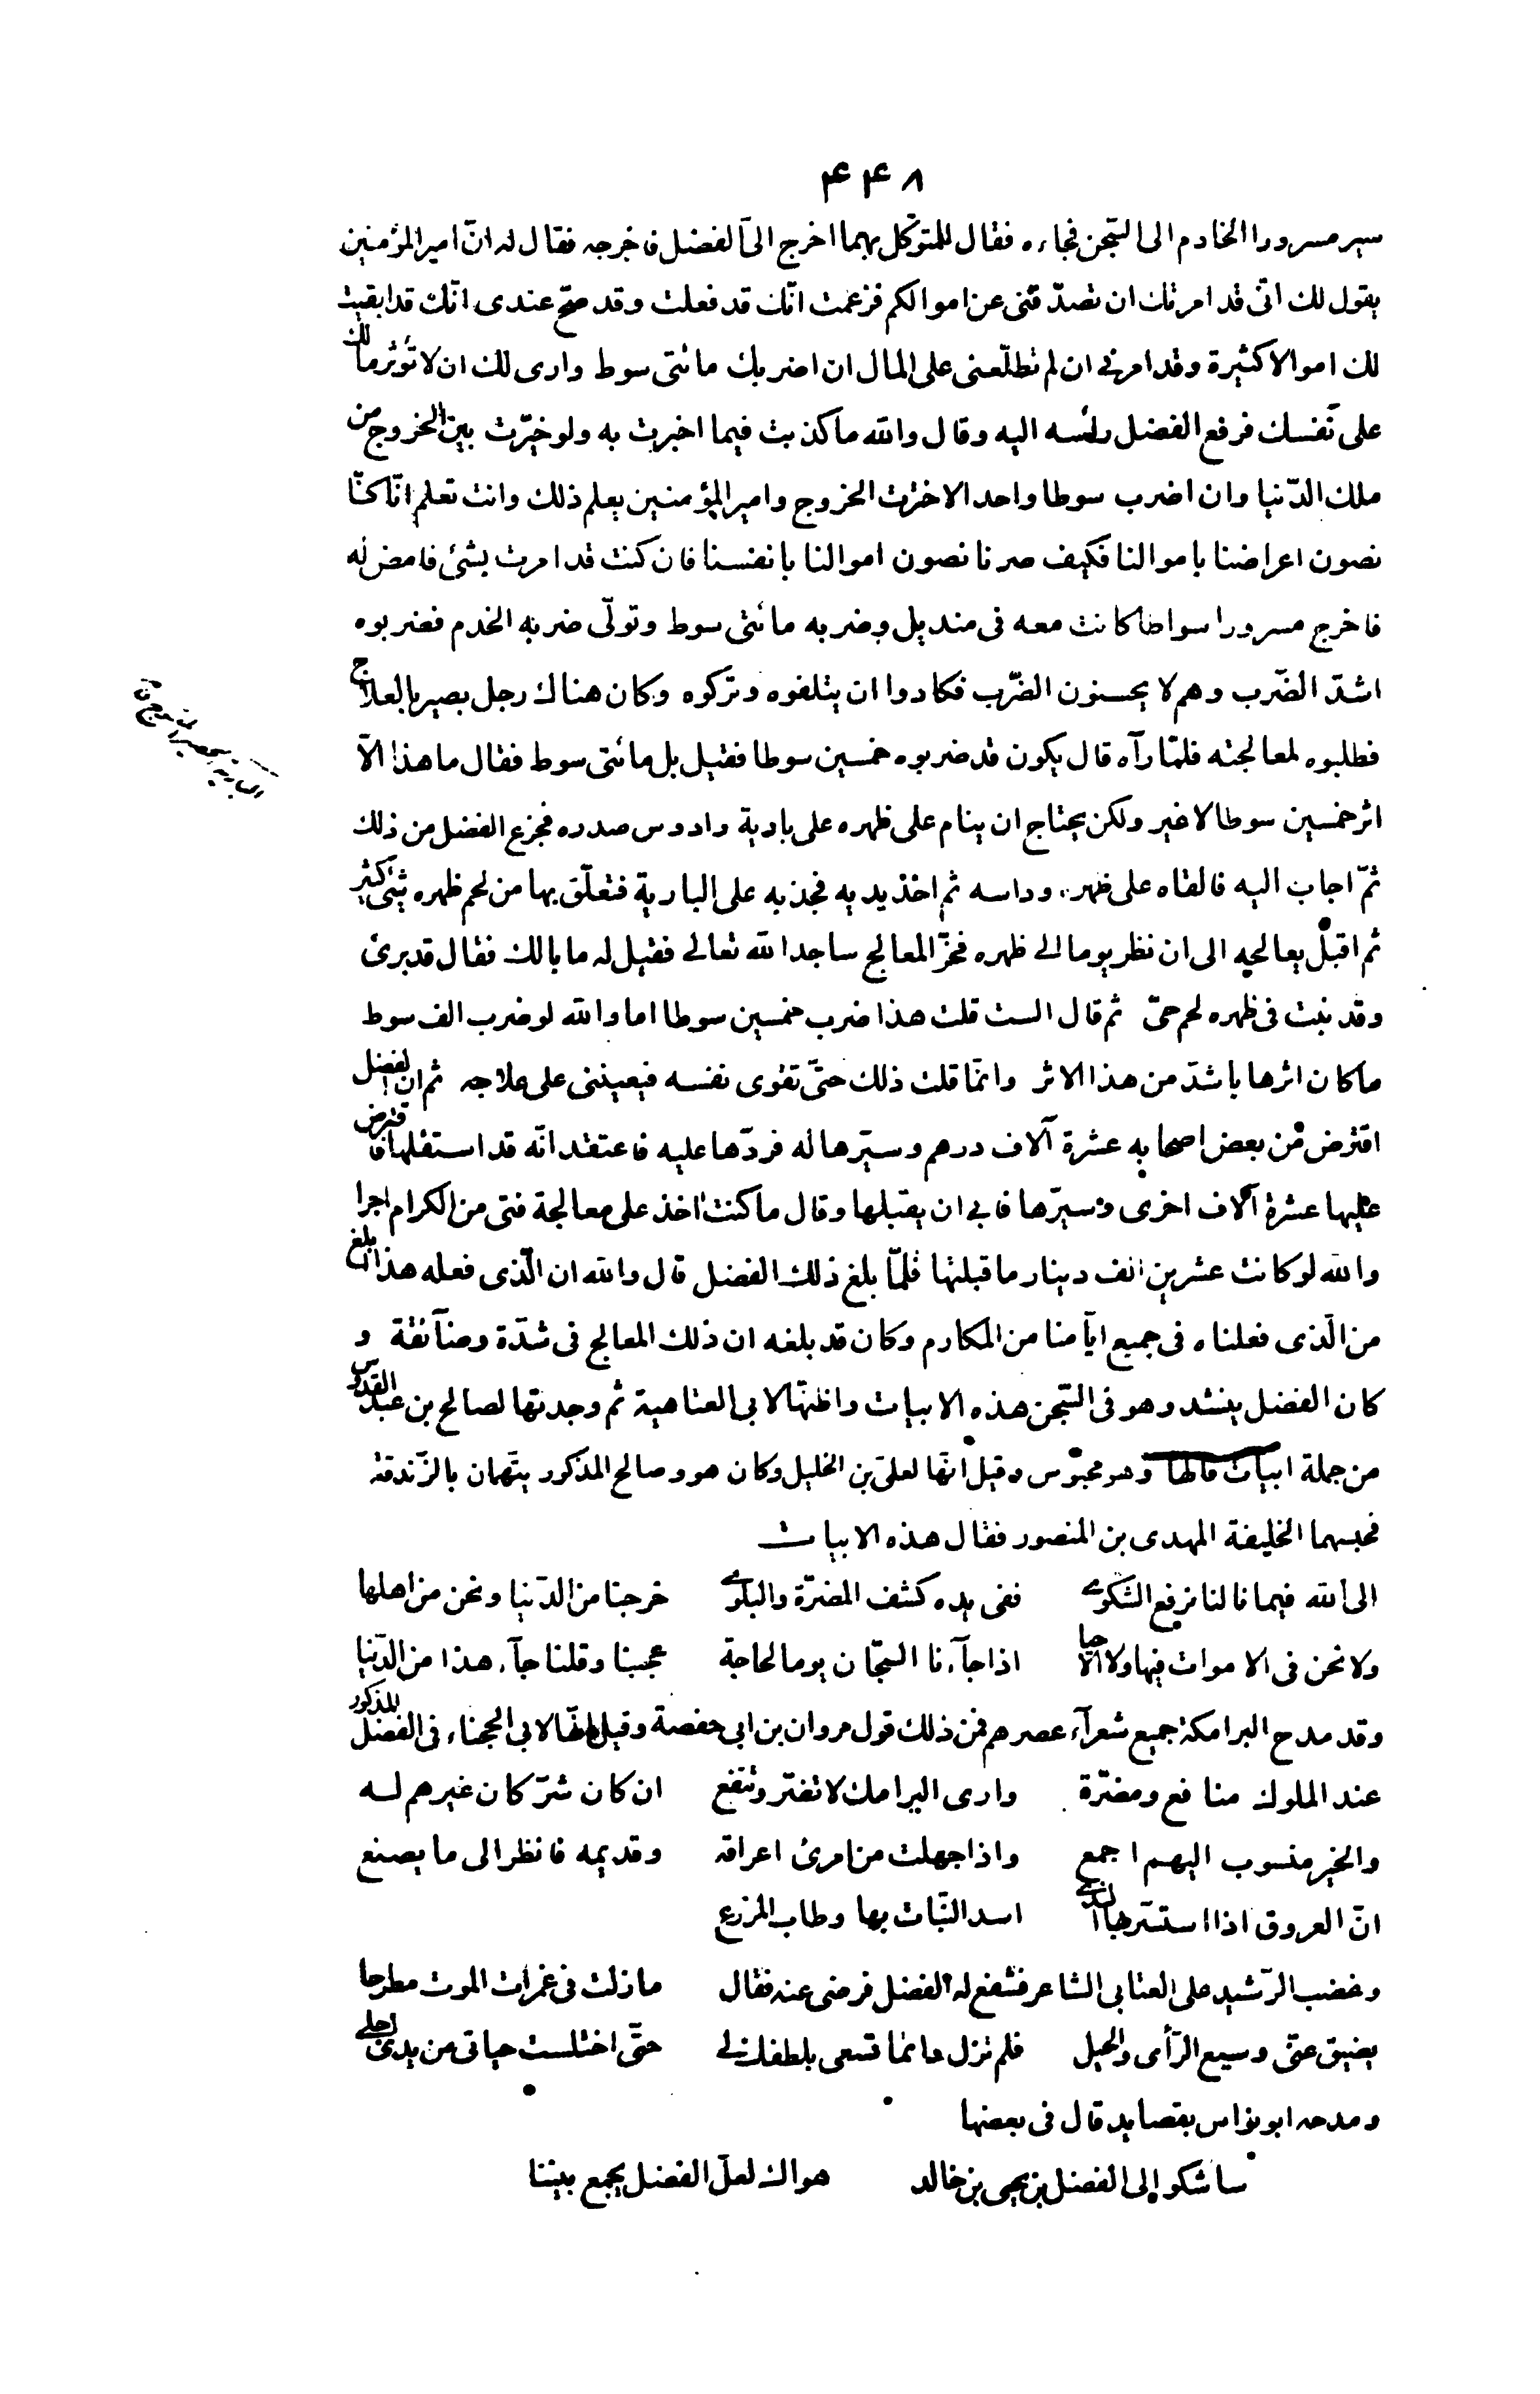 ۴۴۸
سیر مسرورا الخادم الى السّجن فجاءه فقال للمتوكّل بهما اخرج الىّ الفضل فاخرجه فقال له انّ امیر المؤمنین
یقول لك انّی قد امرتك ان تصدّقنی عن اموالكم فزعمت انّك قد فعلت وقد صحّ عندی انّك قد ابقیت
لك اموالا كثیرة وقد امرنی ان لم تطلّعنی على المال ان اضربك مائتی سوط وارى لك ان لا تؤثر مالك
على نفسك فرفع الفضل رأسه الیه وقال والله ما كذبت فیما اخبرت به ولو خیّرت بین الخروج من
ملك الدّنیا وان اضرب سوطا واحدا لاخترت الخروج وامیر المؤمنین یعلم ذلك وانت تعلم انّا كنّا
نصون اعراضنا باموالنا فكیف صرنا نصون اموالنا بانفسنا فان كنت قد امرت بشئ فامض له
فاخرج مسرورا سواطا كانت معه فی مندیل وضربه مائتی سوط وتولّى ضربه الخدم فضربوه
اشدّ الضّرب وهم لا یحسنون الضّرب فكادوا ان یتلفوه وتركوه وكان هناك رجل بصیر بالعلاج
فطلبوه لمعالجته فلمّا رآه قال یكون قد ضربوه خمسین سوطا فقیل بل مائتی سوط فقال ما هذا الّا
اثر خمسین سوطا لا غیر ولكن یحتاج ان ینام على ظهره على باریة وادوس صدره فجزع الفضل من ذلك
ثمّ اجاب الیه فالقاه على ظهره وداسه ثم اخذ بیدیه فجذبه على الباریة فتعلّق بها من لحم ظهره شئ كثیر
ثم اقبل یعالجه الى ان نظر یوما الى ظهره فخرّ المعالج ساجدا لله تعالى فقیل له ما بالك فقال قد برئ
وقد نبت فی ظهره لحم حیّ ثم قال الست قلت هذا ضرب خمسین سوطا اما والله لو ضرب الف سوط
ما كان اثرها باشدّ من هذا الاثر وانّما قلت ذلك حتّى تقوى نفسه فیعیننی على علاجه ثم ان الفضل
اقترض من بعض اصحابه عشرة آلاف درهم وسیّرها له فردّها علیه فاعتقد انّه قد استقلها فاقترض
علیها عشرة آلاف اخرى وسیّرها فابى ان یقبلها وقال ما كنت اخذ على معالجة فتى من الكرام اجرا
والله لو كانت عشرین الف دینار ما قبلتها فلمّا بلغ ذلك الفضل قال والله ان الّذی فعله هذا ابلغ
من الّذی فعلناه فی جمیع ایّامنا من المكارم وكان قد بلغه ان ذلك المعالج فی شدّة وضآئقة و
كان الفضل ینشد وهو فی السّجن هذه الابیات واظنّها لابی العتاهیة ثم وجدتها لصالح بن عبد القدوس
من جملة ابیات قالها وهو محبوس وقیل انّها لعلیّ بن الخلیل وكان هو وصالح المذكور یتّهمان بالزّندقة
فحبسهما الخلیفة المهدی بن المنصور فقال هذه الابیات
الى الله فیما نالنا نرفع الشّكوى ففی یده كشف المضرّة والبلوى خرجنا من الدّنیا ونحن من اهلها
ولا نحن فی الاموات فیها ولا الاحیا اذا جآءنا السّجّان یوما لحاجة عجبنا وقلنا جآء هذا من الدّنیا
وقد مدح البرامكة جمیع شعرآء عصرهم فمن ذلك قول مروان بن ابی حفصة وقیل انّها لابی الحجناء فی الفضل المذكور
عند الملوك منافع ومضرّة وارى البرامك لا تضرّ وتنفع ان كان شرّ كان غیرهم له
والخیر منسوب الیهم اجمع واذا جهلت من امرئ اعراقه وقدیمه فانظر الى ما یصنع
انّ العروق اذا استسّر بها الندى اسد النّبات بها وطاب المزرع
وغضب الرّشید على العتابی الشاعر فشفع له الفضل فرضی عنه فقال ما زلت فی غمرات الموت مطرحا
یضیق عنّی وسیع الرّأی والحیل فلم تزل دائما تسعى بلطفك لی حتّى اختلست حیاتی من یدی اجلی
ومدحه ابو نواس بقصاید قال فی بعضها
ساشكو الى الفضل بن یحیى بن خالد هواك لعلّ الفضل یجمع بیننا